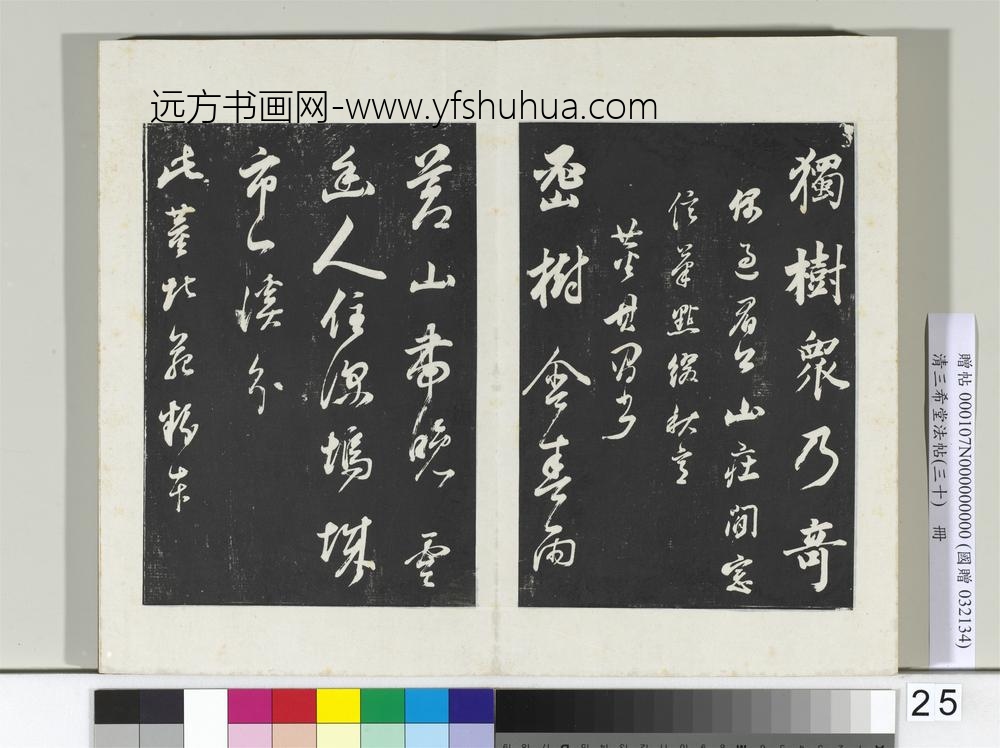 远方书画网-www.yfshuhua.com
獨樹衆乃奇
偶過眉公山莊閒窓
信筆點綴秋意
密樹含春雨
山帶晚雲
人住深塢城
市一溪分
此董北苑粉本
贈帖 000107N000000000 (國贈 032134)
清三希堂法帖(三十) 冊
25